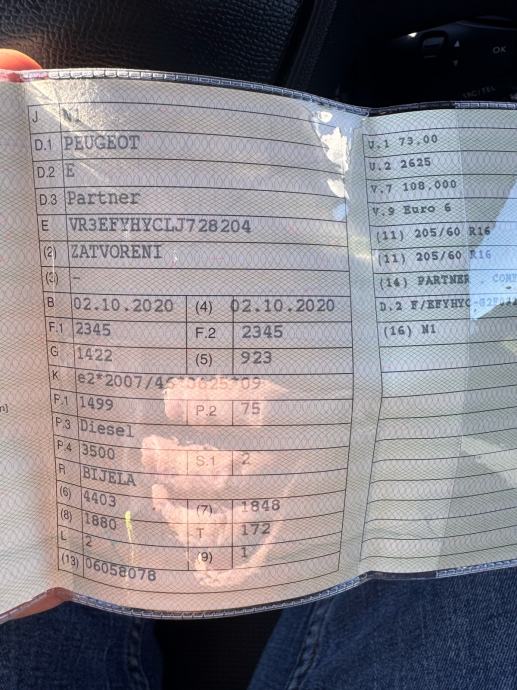 J N1
D.1 PEUGEOT
D.2 E
D.3 Partner
E VR3EFYHYCLJ728204
(2) ZATVORENI
(3) -
B 02.10.2020 (4) 02.10.2020
F.1 2345 F.2 2345
G 1422 (5) 923
K
F.1 1499 P.2 75
P.3 Diesel
P.4 3500 S.1 2
R BIJELA
(6) 4403 (7) 1848
(8) 1880 T 172
L 2 (9) 1
(13) 06058078
U.1 73,00
U.2 2625
V.7 108,000
V.9 Euro 6
(11) 205/60 R16
(11) 205/60 R16
(14) PARTNER
D.2
(16) N1
OK
SRC/TEL